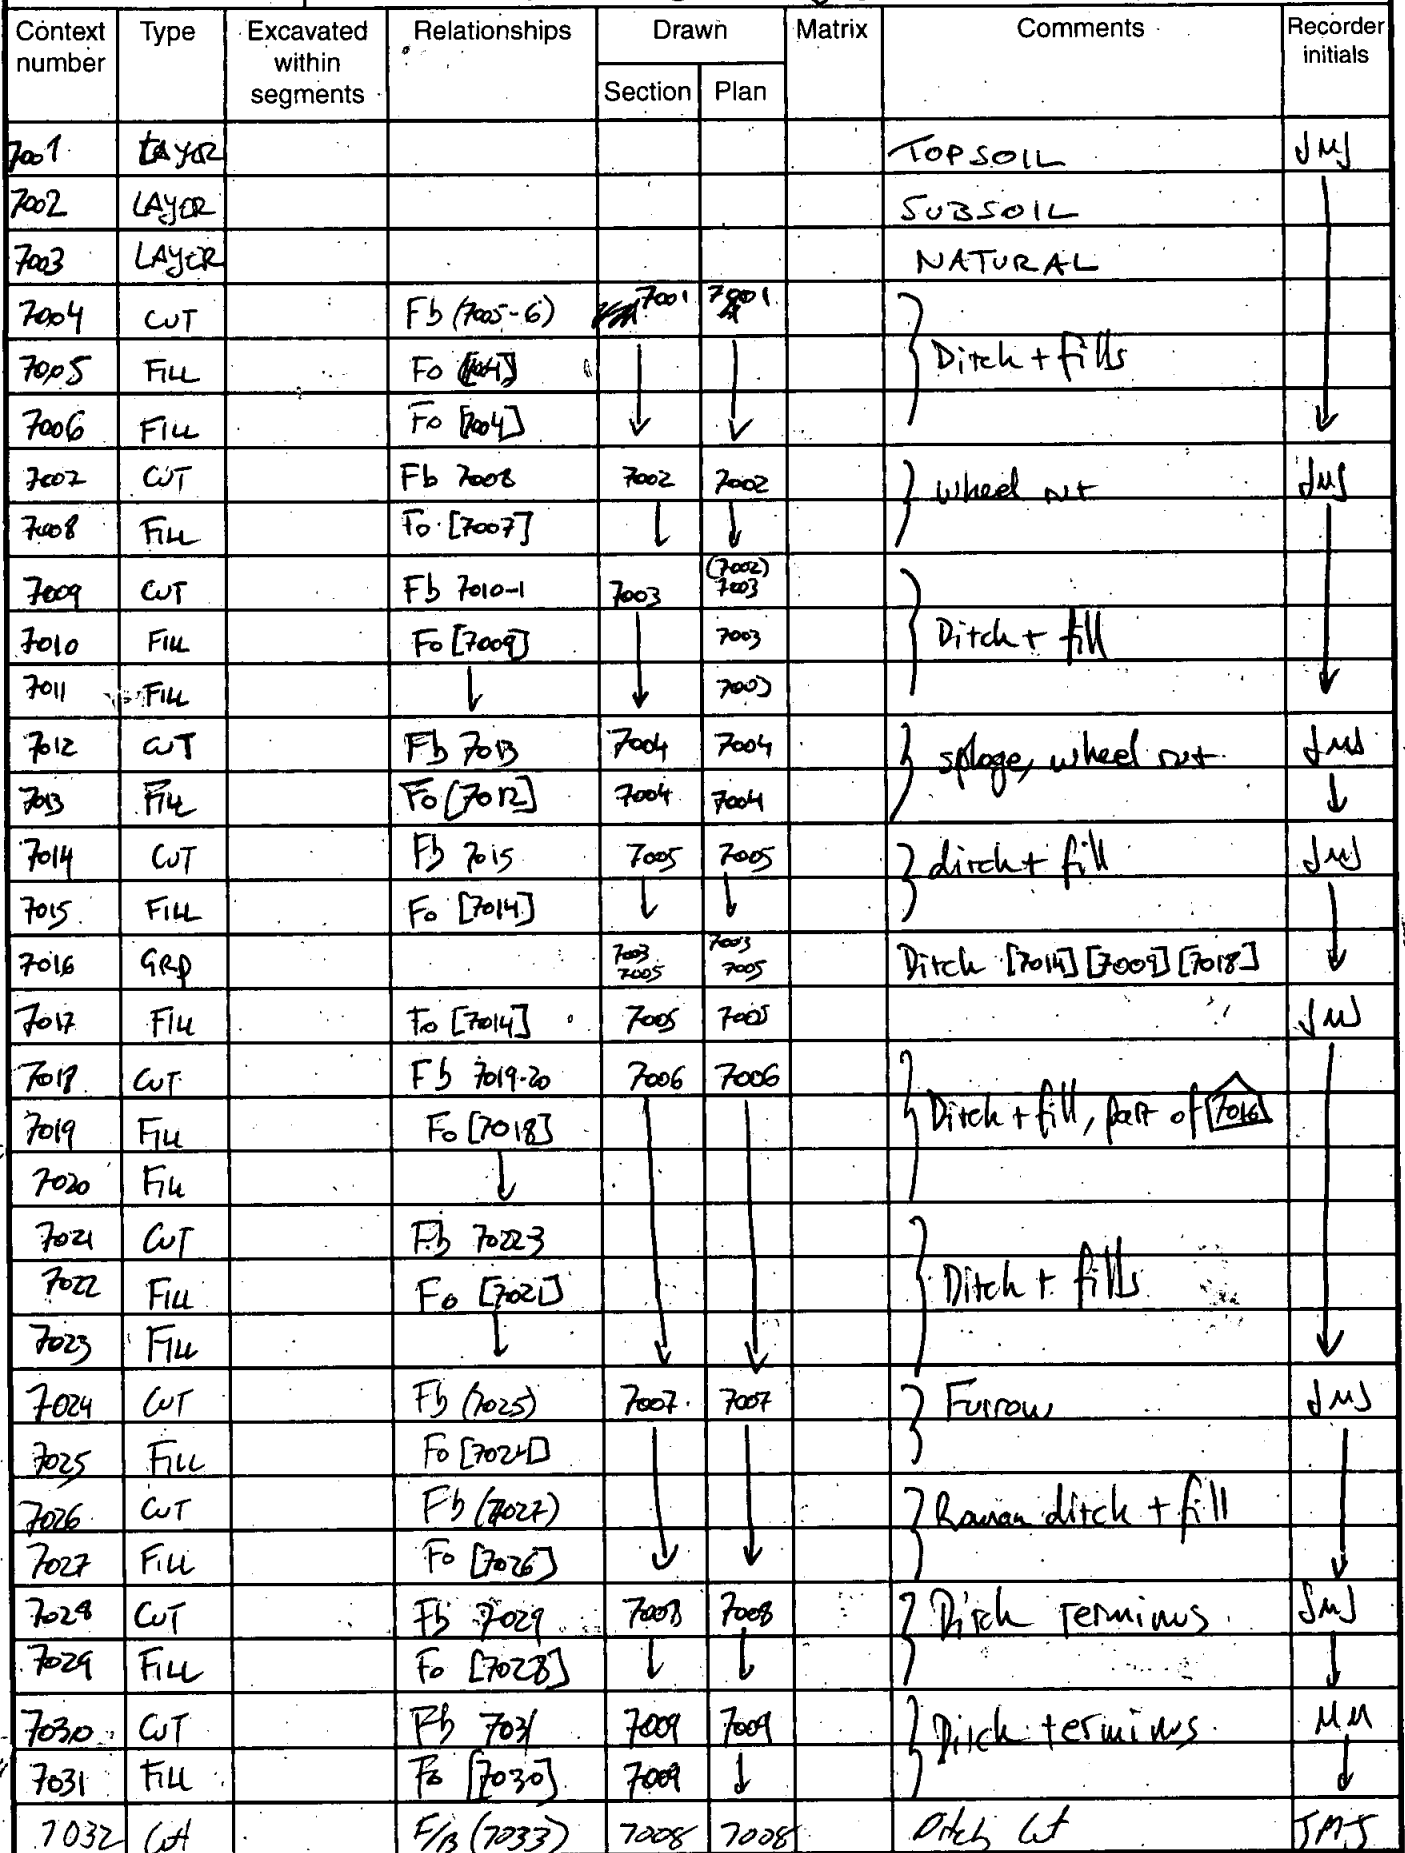 Context number Type Excavated within segments Relationships Drawn Section Plan Matrix Comments Recorder initials
7001 LAYER TOPSOIL JMJ
7002 LAYER SUBSOIL
7003 LAYER NATURAL
7004 CUT Fb (7005-6) 7001 7001
7005 FILL Fo [7004] Ditch + fills
7006 FILL Fo [7004]
7007 CUT Fb 7008 7002 7002 wheel rut JMJ
7008 FILL Fo [7007]
7009 CUT Fb 7010-1 7003 (7002) 7003
7010 FILL Fo [7009] 7003 Ditch + fill
7011 FILL 7003
7012 CUT Fb 7013 7004 7004 sploge, wheel rut JMJ
7013 FILL Fo [7012] 7004 7004
7014 CUT Fb 7015 7005 7005 ditch + fill JMJ
7015 FILL Fo [7014]
7016 GRP 7003 7005 7003 7005 Ditch [7014] [7009] [7018]
7017 FILL Fo [7014] 7005 7005 JMJ
7018 CUT Fb 7019-20 7006 7006
7019 FILL Fo [7018] Ditch + fill, part of 7016
7020 FILL
7021 CUT Fb 7022-3
7022 FILL Fo [7021] Ditch + fills
7023 FILL
7024 CUT Fb (7025) 7007 7007 Furrow JMJ
7025 FILL Fo [7024]
7026 CUT Fb (7027) Roman ditch + fill
7027 FILL Fo [7026]
7028 CUT Fb 7029 7008 7008 Ditch terminus JMJ
7029 FILL Fo [7028]
7030 CUT Fb 7031 7009 7009 Ditch terminus MM
7031 FILL Fo [7030] 7009
7032 Cut F/B (7033) 7008 7008 Ditch Cut JMJ